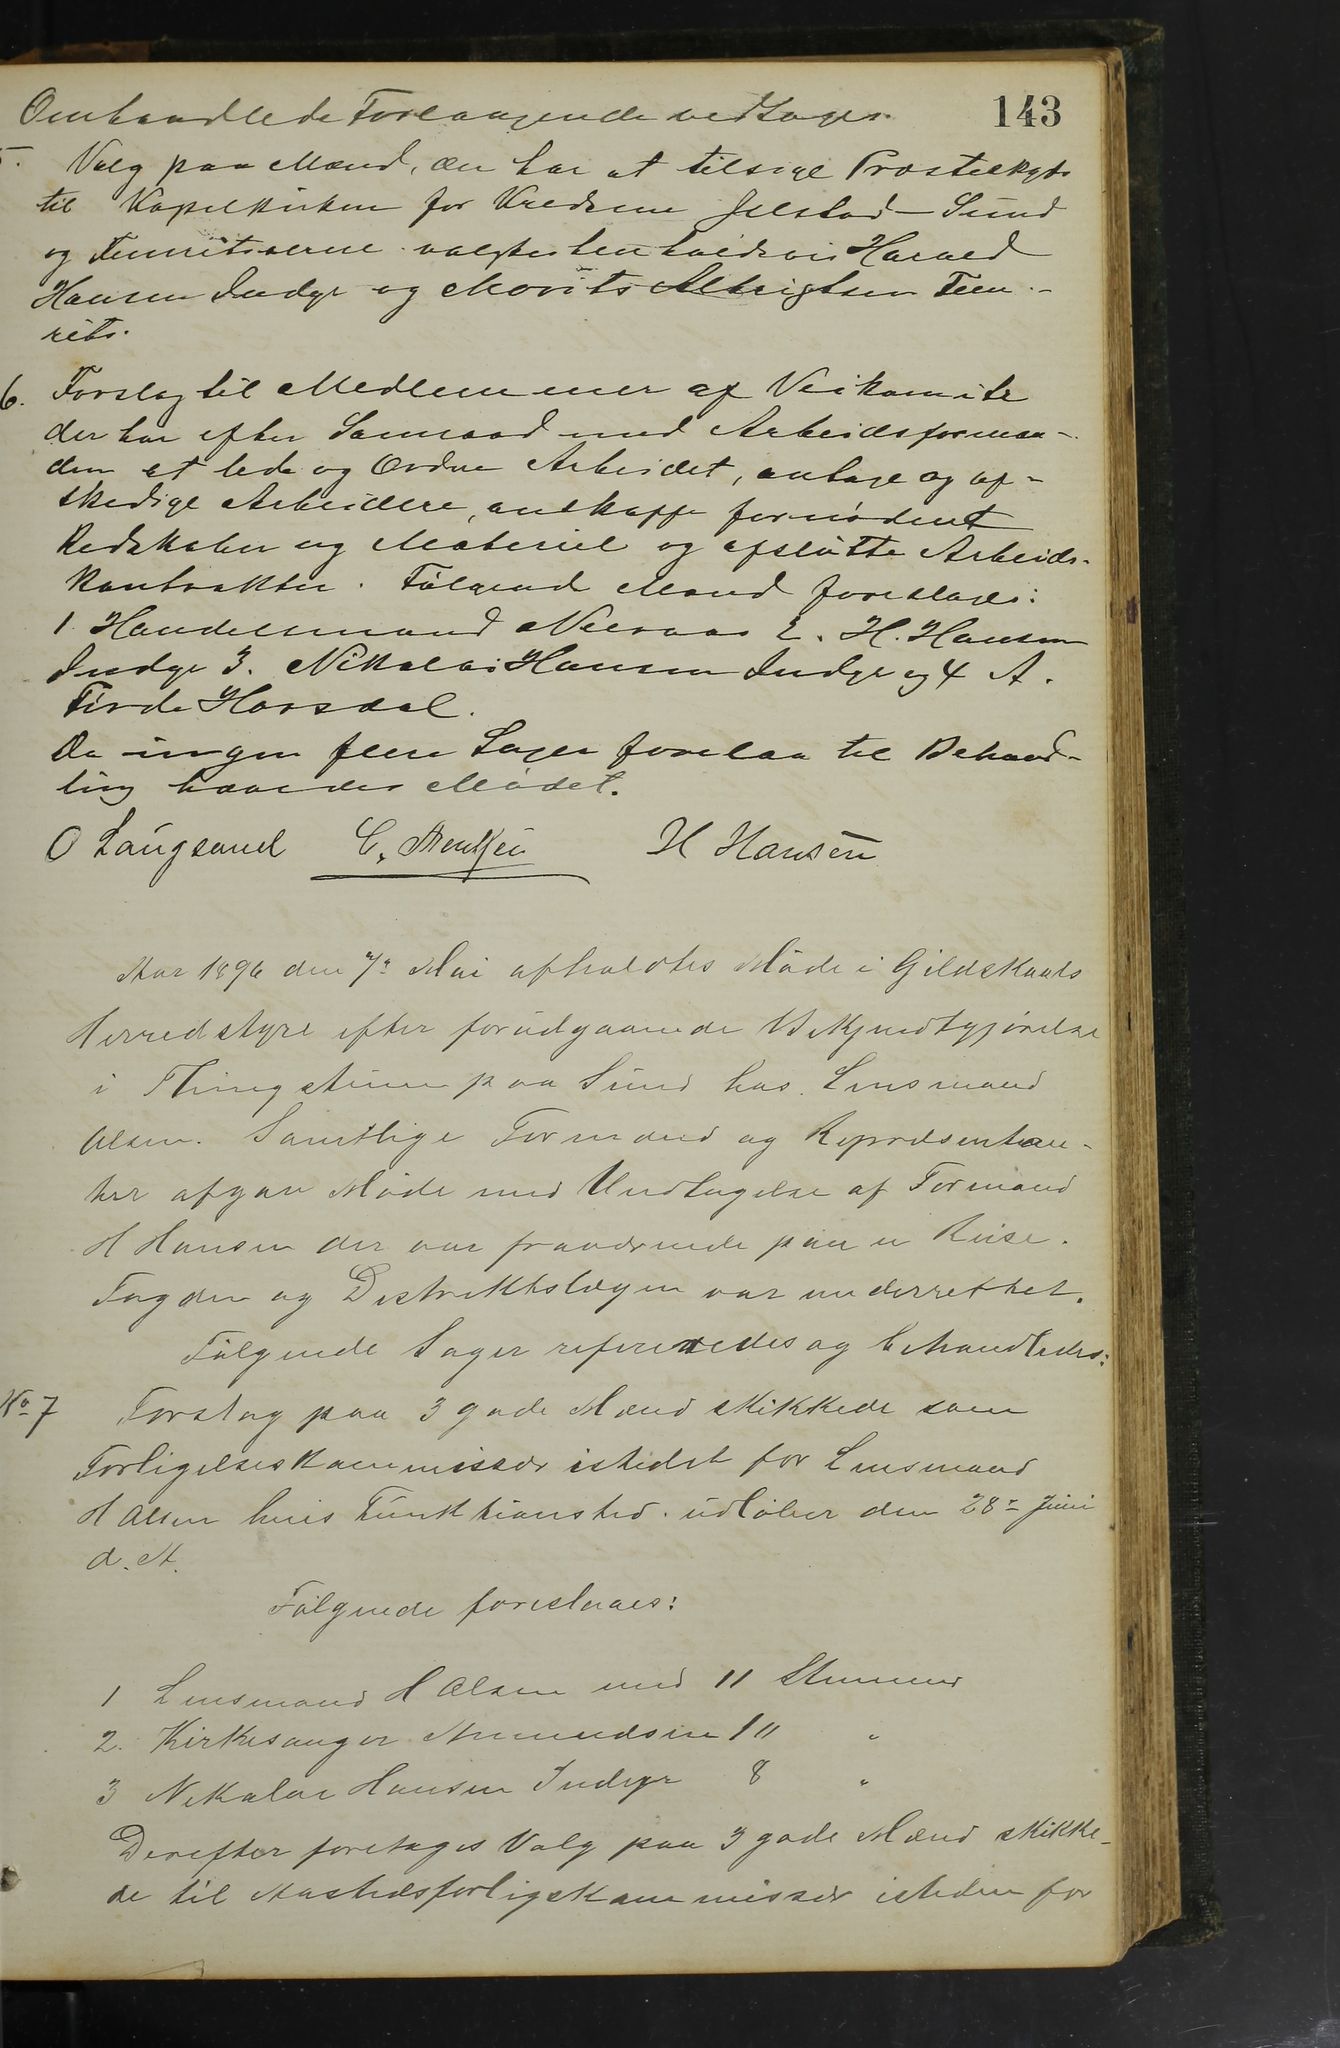 143
Omhandlede Forlangende vedtages.
5. Valg paa Mænd, der har at tilsige Præsteskyds
til Kapelkirken for Kredsene Jelstad - Sund
og Fleinvær valgtes henholdsvis Harald
Hansen Indyr og Morits Albrigtsen
6. Forslag til Medlemmer af Veikomite
der har efter Samraad med Arbeidsforman-
den at lede og Ordne Arbeidet, antage og af-
skedige Arbeidere, anskaffe fornødent
Redskaber og Materiel og afslutte Arbeids-
kontrakter. Følgend Mænd foreslaaes:
1 Handelsmand 2. H. Hansen
Indyr 3. Nikolai Hansen Indyr og 4 A.
Horsdal.
Da ingen flere Sager forelaa til Behand-
ling hævedes Mødet.
O Langsand C. H Hansen
Aar 1896 den 7de Mai afholdtes Møde i Gildskaals
Herredstyre efter forudgaaende Bekjendtgjørelse
i Thingstuen paa Sund hos Lensmand
Olsen. Samtlige Formænd og Repræsentan-
ter afgav Møde med Undtagelse af Formand
H Hansen der var fraværende paa en Reise.
Fogden og Distriktslægen var underrettet.
Følgende Sager refereredes og behandledes:
No 7 Forslag paa 3 gode Mænd skikkede som
Forligelseskommissær istedet for Lensmand
H Olsen hvis Funktionstid udløber den 28de Juni
d. A.
Følgende foreslaaes:
1 Lensmand H Olsen med 11 Stemmer
2. Kirkesanger Amundsen 1 " "
3 Nikolai Hansen Indyr 8 "
Derefter foretages Valg paa 3 gode Mænd skikke-
de til Aastedsforligskommissær isteden for